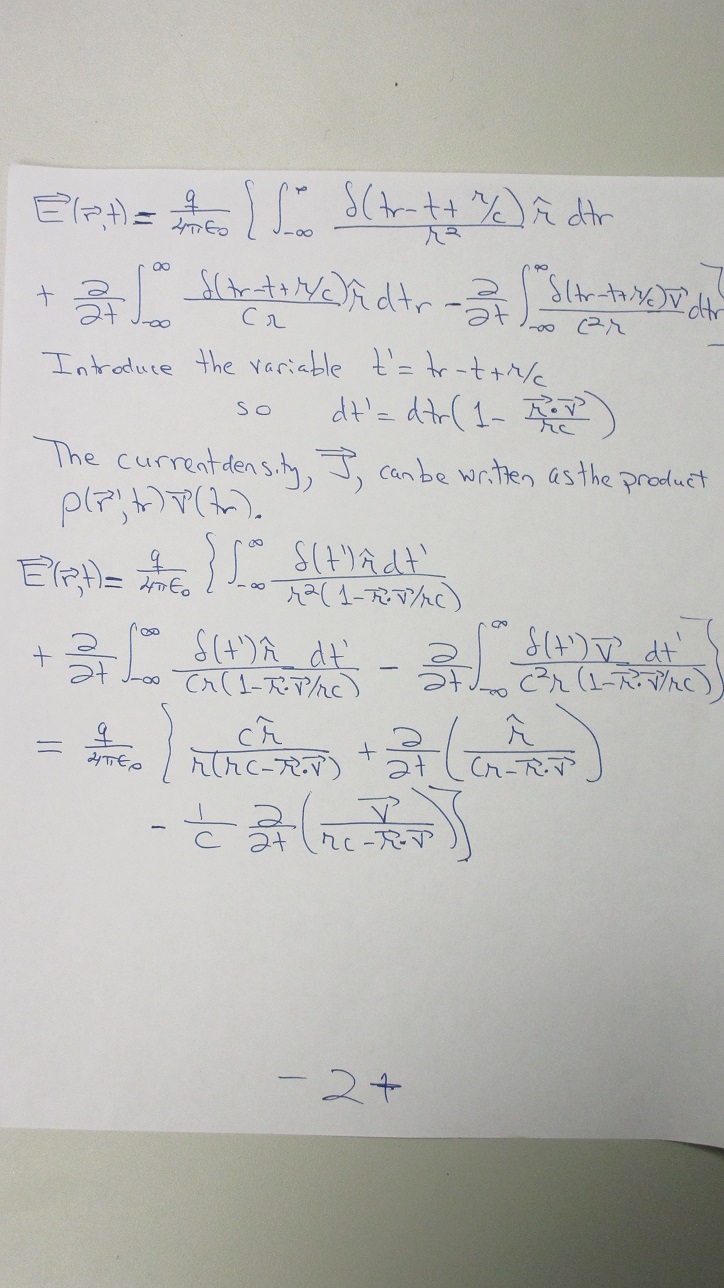 E⃗(r⃗,t) = q/4πε₀ { ∫_{-∞}^{∞} δ(tr-t+r/c) r̂ dtr / r²
+ ∂/∂t ∫_{-∞}^{∞} δ(tr-t+r/c) r̂ dtr / cr - ∂/∂t ∫_{-∞}^{∞} δ(tr-t+r/c) v⃗ dtr / c²r }
Introduce the variable t' = tr-t+r/c
so dt' = dtr(1 - r⃗·v⃗/rc)
The current density, J⃗, can be written as the product
ρ(r⃗',tr) v⃗(tr).
E⃗(r⃗,t) = q/4πε₀ { ∫_{-∞}^{∞} δ(t') r̂ dt' / r²(1-r⃗·v⃗/rc)
+ ∂/∂t ∫_{-∞}^{∞} δ(t') r̂ dt' / cr(1-r⃗·v⃗/rc) - ∂/∂t ∫_{-∞}^{∞} δ(t') v⃗ dt' / c²r(1-r⃗·v⃗/rc) }
= q/4πε₀ { c r̂ / r(rc-r⃗·v⃗) + ∂/∂t ( r̂ / cr-r⃗·v⃗ )
- 1/c ∂/∂t ( v⃗ / rc-r⃗·v⃗ ) }
-2+